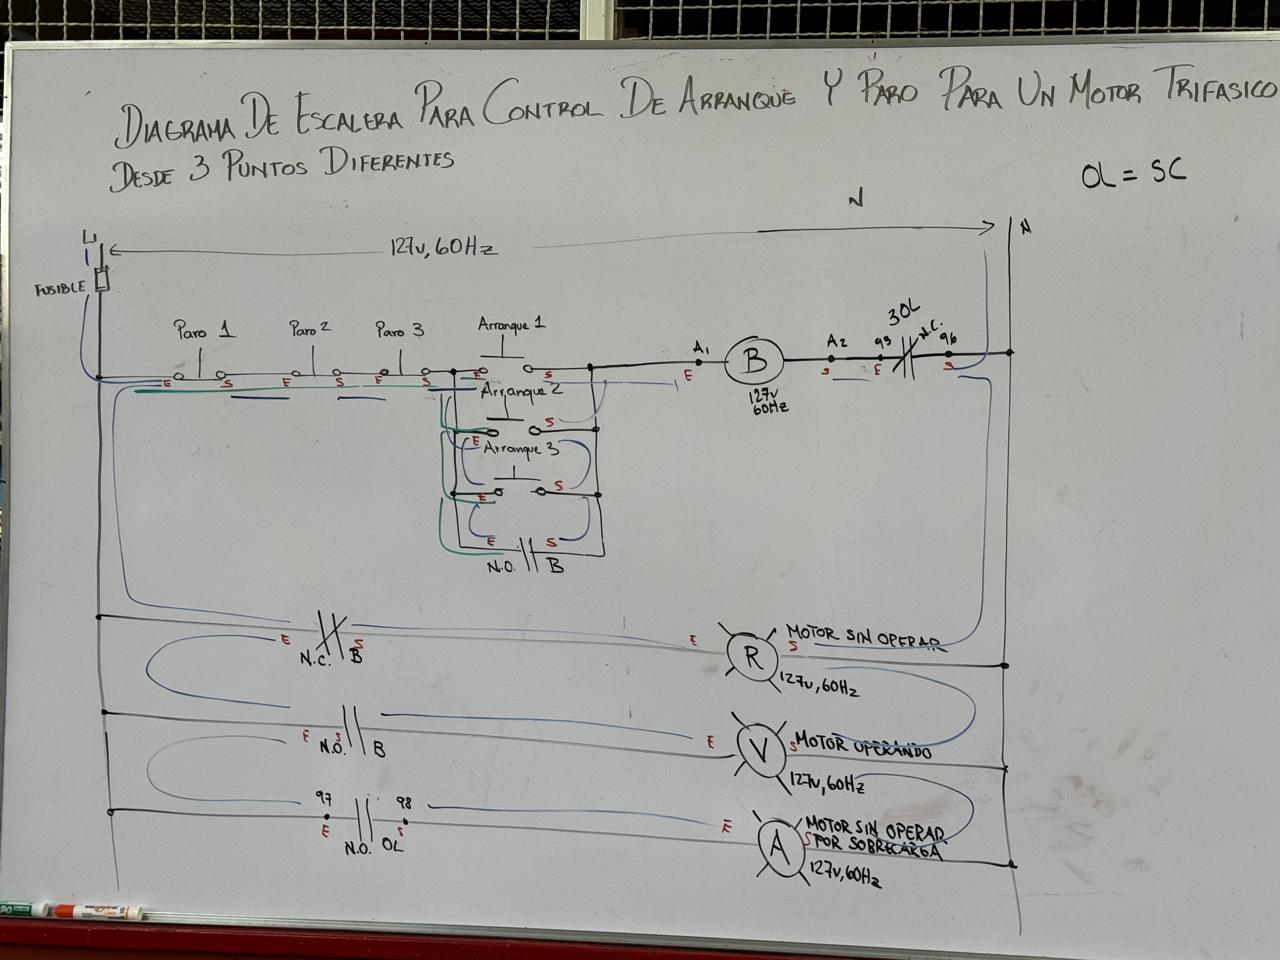 DIAGRAMA DE ESCALERA PARA CONTROL DE ARRANQUE Y PARO PARA UN MOTOR TRIFASICO
DESDE 3 PUNTOS DIFERENTES
OL = SC
N
L1
127v, 60Hz
N
FUSIBLE
Paro 1
Paro 2
Paro 3
Arranque 1
3OL
N.C.
A1
B
A2
95
96
E
S
E
S
E
S
E
S
E
S
E
S
127v
60Hz
Arranque 2
E
S
Arranque 3
E
S
E
S
N.O.
B
E
S
N.C.
B
E
R
S
MOTOR SIN OPERAR
127v, 60Hz
E
S
N.O.
B
E
V
S
MOTOR OPERANDO
127v, 60Hz
97
98
E
S
N.O.
OL
E
A
S
MOTOR SIN OPERAR
POR SOBRECARGA
127v, 60Hz